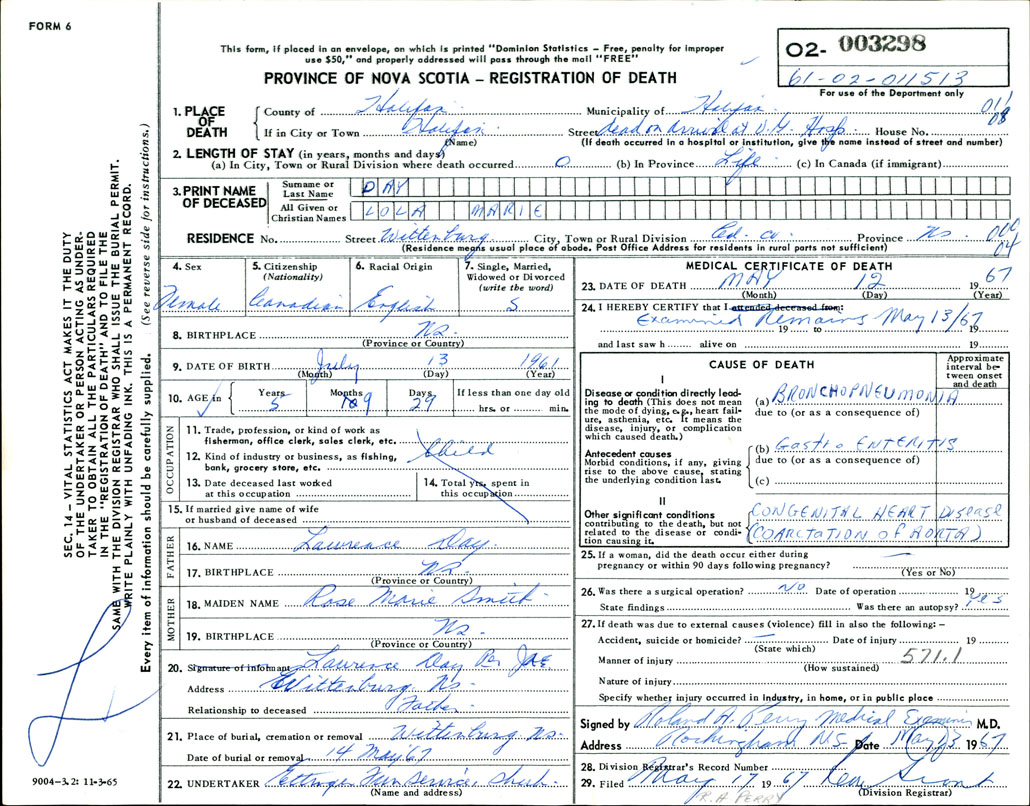 FORM 6
This form, if placed in an envelope, on which is printed "Dominion Statistics – Free, penalty for improper
use $50," and properly addressed will pass through the mail "FREE"
PROVINCE OF NOVA SCOTIA – REGISTRATION OF DEATH
02- 003298
61-02-011513
For use of the Department only
SEC. 14 – VITAL STATISTICS ACT MAKES IT THE DUTY
OF THE UNDERTAKER OR PERSON ACTING AS UNDER-
TAKER TO OBTAIN ALL THE PARTICULARS REQUIRED
IN THE "REGISTRATION OF DEATH" AND TO FILE THE
SAME WITH THE DIVISION REGISTRAR WHO SHALL ISSUE THE BURIAL PERMIT.
WRITE PLAINLY WITH UNFADING INK. THIS IS A PERMANENT RECORD.
Every item of information should be carefully supplied. (See reverse side for instructions.)
1. PLACE OF DEATH
County of Halifax Municipality of Halifax 011
If in City or Town Halifax Street dead on arrival at V.G. Hosp. House No. 08
(Name) (If death occurred in a hospital or institution, give the name instead of street and number)
2. LENGTH OF STAY (in years, months and days)
(a) In City, Town or Rural Division where death occurred 0 (b) In Province Life (c) In Canada (if immigrant)
3. PRINT NAME OF DECEASED
Surname or Last Name DAY
All Given or Christian Names LOLA MARIE
RESIDENCE No. Street Wittenburg City, Town or Rural Division Col. co. Province Ns. 000
(Residence means usual place of abode. Post Office Address for residents in rural parts not sufficient) 04
4. Sex
Female
5. Citizenship (Nationality)
Canadian
6. Racial Origin
English
7. Single, Married, Widowed or Divorced (write the word)
S
8. BIRTHPLACE Ns.
(Province or Country)
9. DATE OF BIRTH July 13 1961
(Month) (Day) (Year)
10. AGE in Years 5 Months 9 Days 29 If less than one day old hrs. or min.
OCCUPATION
11. Trade, profession, or kind of work as
fisherman, office clerk, sales clerk, etc.
Child
12. Kind of industry or business, as fishing,
bank, grocery store, etc.
13. Date deceased last worked
at this occupation
14. Total yrs. spent in
this occupation
15. If married give name of wife
or husband of deceased
FATHER
16. NAME Lawrence Day
17. BIRTHPLACE Ns.
(Province or Country)
MOTHER
18. MAIDEN NAME Rose Marie Smith
19. BIRTHPLACE Ns.
(Province or Country)
20. Signature of informant Lawrence Day Per JAE
Address Wittenburg Ns.
Relationship to deceased Father
21. Place of burial, cremation or removal Wittenburg Ns.
Date of burial or removal 14 May '67
22. UNDERTAKER Ettinger Fun Service, Shub.
(Name and address)
9004–3.2: 11-3-65
MEDICAL CERTIFICATE OF DEATH
23. DATE OF DEATH MAY 12 1967
(Month) (Day) (Year)
24. I HEREBY CERTIFY that I attended deceased from:
Examined Remains May 13/67
19 to 19
and last saw h alive on 19
CAUSE OF DEATH
Approximate interval between onset and death
I
Disease or condition directly lead-
ing to death (This does not mean
the mode of dying, e.g., heart fail-
ure, asthenia, etc. It means the
disease, injury, or complication
which caused death.)
(a) BRONCHOPNEUMONIA
due to (or as a consequence of)
Antecedent causes
Morbid conditions, if any, giving
rise to the above cause, stating
the underlying condition last.
(b) Gastro ENTERITIS
due to (or as a consequence of)
(c)
II
Other significant conditions
contributing to the death, but not
related to the disease or condi-
tion causing it.
CONGENITAL HEART DISEASE
(COARCTATION OF AORTA)
25. If a woman, did the death occur either during
pregnancy or within 90 days following pregnancy? —
(Yes or No)
26. Was there a surgical operation? No. Date of operation 19
State findings Was there an autopsy? Yes
27. If death was due to external causes (violence) fill in also the following: –
Accident, suicide or homicide? — Date of injury 19
(State which)
Manner of injury 571.1
(How sustained)
Nature of injury
Specify whether injury occurred in industry, in home, or in public place
Signed by Roland A. Perry Medical Examiner M.D.
Address Rockingham N.S. Date May 23 1967
28. Division Registrar's Record Number
29. Filed May 17 1967
(Division Registrar)
R.A PERRY